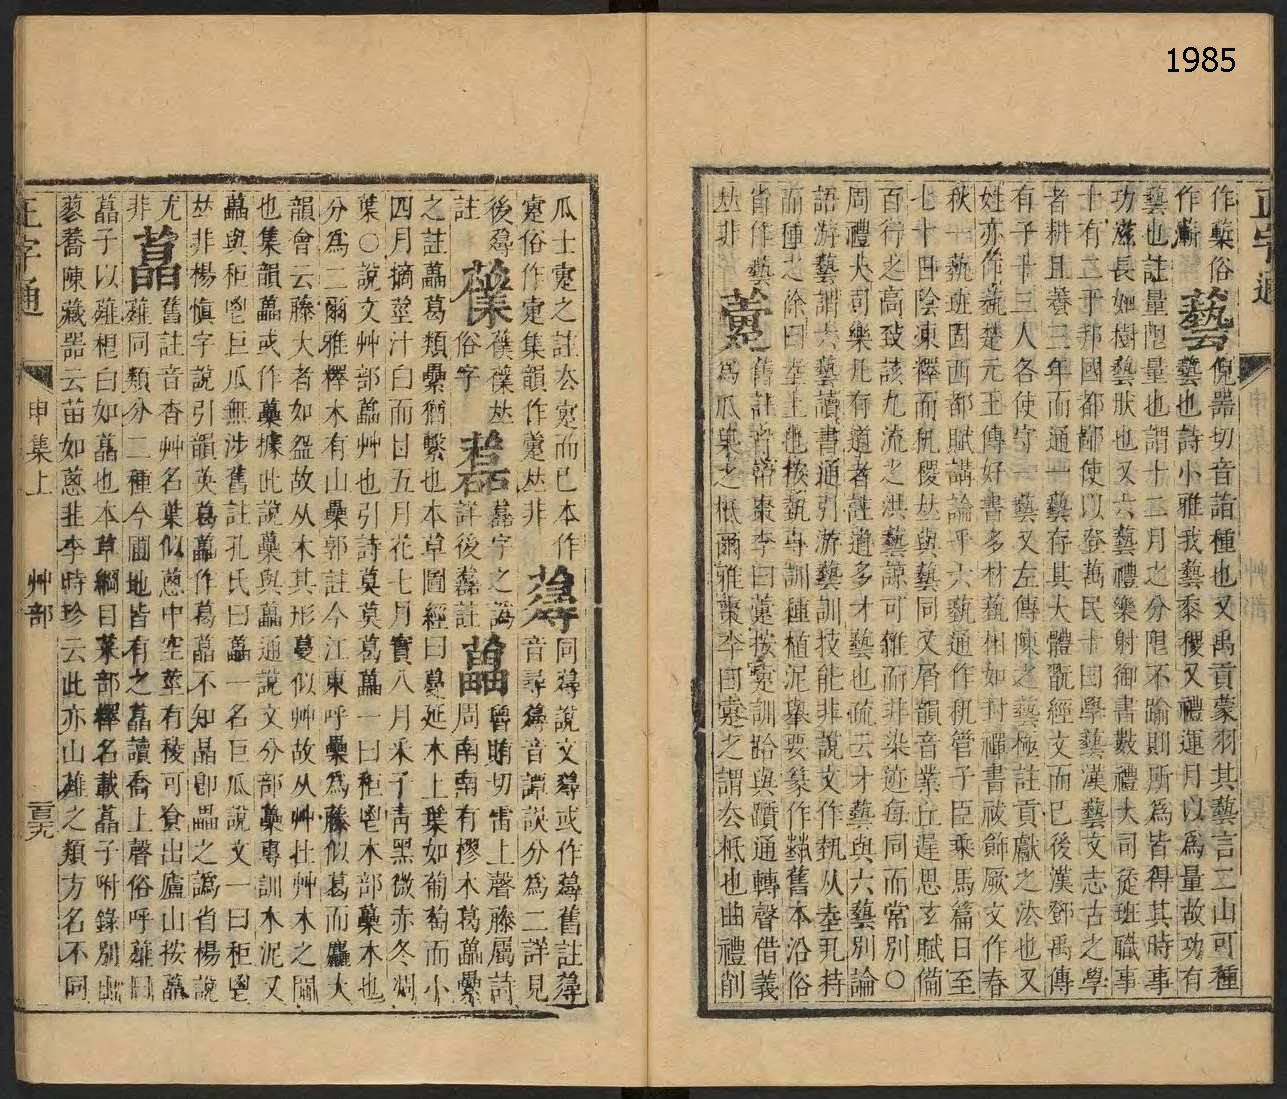 1985
正字通
作蔪俗作蔪
藝
倪器切音詣種也又禹貢蒙羽其藝言二山可種
藝也詩小雅我藝黍稷又禮運月以為量故功有
藝也註量限量也謂十二月之分限不踰則所為皆得其時事
功滋長如樹藝狀也又六藝禮樂射御書數禮大司徒班職事
十有二于邦國都鄙使以登萬民十曰學藝漢藝文志古之學
者耕且養三年而通一藝存其大體翫經文而已後漢鄧禹傳
有子十三人各使守一藝又左傳陳之藝極註貢獻之法也又
姓亦作蓺楚元王傳好書多材藝相如封禪書祓飾厥文作春
秋一蓺班固西都賦講論乎六蓺通作秇管子臣乘馬篇日至
七十日陰凍釋而秇稷𠀤與藝同又屑韻音業丘遲思玄賦備
百行之高致該九流之洪藝諒可雜而非染迹每同而常別○
周禮大司樂凡有道者註道多才藝也疏云才藝與六藝別論
語游藝謂六藝讀書通引游藝訓技能非說文作埶从坴丮持
而種之徐曰坴土也按蓺專訓種植泥舉要篆作蓺舊本沿俗
省作蓺
藁
舊註音帶棗李曰藁按疐訓跲與躓通轉聲借義
𠀤非
為瓜果之柢爾雅棗李曰疐之謂公柢也曲禮削
瓜士疐之註公疐而已本作
疐俗作疌集韻作藁𠀤非
蕁
同蕁說文蕁或作蕁舊註蕁
音尋蕁音譚談分為二詳見
後蕁
註
䕲
䕲䕲𠀤
俗字
藞
藞字之譌
詳後藞註
藟
魯賄切雷上聲藤屬詩
周南南有樛木葛藟纍
之註藟葛類纍猶繫也本草圖經曰蔓延木上葉如葡萄而小
四月摘莖汁白而甘五月花七月實八月采子青黑微赤冬凋
葉○說文艸部藟艸也引詩莫莫葛藟一曰秬鬯木部蘽木也
分為二爾雅釋木有山纍郭註今江東呼纍為藤似葛而麤大
韻會云藤大者如盌故从木其形蔓似艸故从艸在艸木之閒
也集韻藟或作蘽據此說蘽與藟通說文分部蘽專訓木泥又
藟與秬鬯巨瓜無涉舊註孔氏曰藟一名巨瓜說文一曰秬鬯
𠀤非楊慎字說引韻英葛藟作葛萏不知晶卽畾之譌省楊說
尤
非
藠
舊註音杳艸名葉似蔥中空莖有稜可食出廬山按藠
薤同類分二種今圃地皆有之藠讀喬上聲俗呼薤曰
藠子以薤根白如藠也本草綱目菜部釋名載藠子附錄別出
蓼蕎陳藏器云苗如蔥韭李時珍云此亦山薤之類方名不同
正字通
申集上
艸部
百九